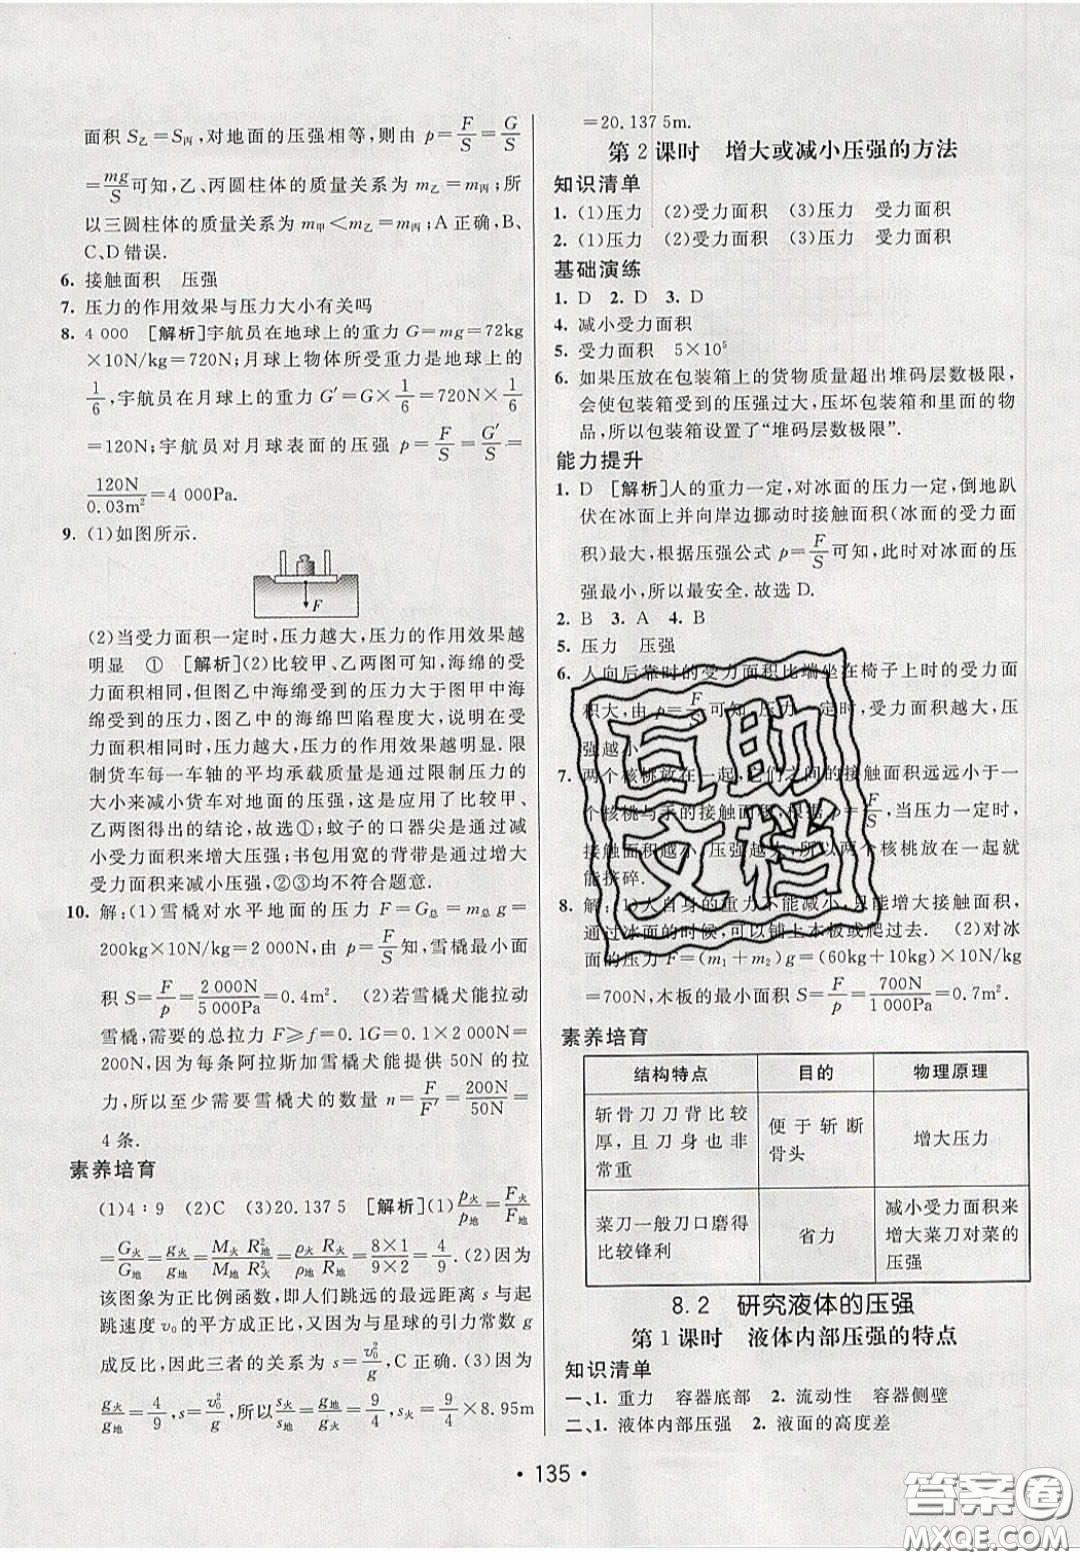 面积 S乙=S丙,对地面的压强相等,则由 p=F/S=G/S
=mg/S可知,乙、丙圆柱体的质量关系为 m乙=m丙;所
以三圆柱体的质量关系为 m甲<m乙=m丙;A正确,B、
C、D错误.
6. 接触面积 压强
7. 压力的作用效果与压力大小有关吗
8. 4 000 [解析]宇航员在地球上的重力 G=mg=72kg
×10N/kg=720N;月球上物体所受重力是地球上的
1/6,宇航员在月球上的重力 G′=G×1/6=720N×1/6
=120N;宇航员对月球表面的压强 p=F/S=G′/S=
120N/0.03m²=4 000Pa.
9. (1)如图所示.
F
(2)当受力面积一定时,压力越大,压力的作用效果越
明显 ① [解析](2)比较甲、乙两图可知,海绵的受
力面积相同,但图乙中海绵受到的压力大于图甲中海
绵受到的压力,图乙中的海绵凹陷程度大,说明在受
力面积相同时,压力越大,压力的作用效果越明显.限
制货车每一车轴的平均承载质量是通过限制压力的
大小来减小货车对地面的压强,这是应用了比较甲、
乙两图得出的结论,故选①;蚊子的口器尖是通过减
小受力面积来增大压强;书包用宽的背带是通过增大
受力面积来减小压强,②③均不符合题意.
10. 解:(1)雪橇对水平地面的压力 F=G总=m总g=
200kg×10N/kg=2 000N,由 p=F/S知,雪橇最小面
积 S=F/p=2 000N/5 000Pa=0.4m². (2)若雪橇犬能拉动
雪橇,需要的总拉力 F≥f=0.1G=0.1×2 000N=
200N,因为每条阿拉斯加雪橇犬能提供 50N 的拉
力,所以至少需要雪橇犬的数量 n=F/F′=200N/50N=
4条.
素养培育
(1)4∶9 (2)C (3)20.137 5 [解析](1)p火/p地=F火/F地
=G火/G地=g火/g地=M火/M地 R²地/R²火=ρ火/ρ地 R火/R地=8×1/9×2=4/9.(2)因为
该图象为正比例函数,即人们跳远的最远距离 s 与起
跳速度 v0 的平方成正比,又因为与星球的引力常数 g
成反比,因此三者的关系为 s=v0²/g,C正确.(3)因为
g火/g地=4/9,s=v0²/g,所以s火/s地=g地/g火=9/4,s火=9/4×8.95m
=20.137 5m.
第2课时 增大或减小压强的方法
知识清单
1. (1)压力 (2)受力面积 (3)压力 受力面积
2. (1)压力 (2)受力面积 (3)压力 受力面积
基础演练
1. D 2. D 3. D
4. 减小受力面积
5. 受力面积 5×10⁵
6. 如果压放在包装箱上的货物质量超出堆码层数极限,
会使包装箱受到的压强过大,压坏包装箱和里面的物
品,所以包装箱设置了“堆码层数极限”.
能力提升
1. D [解析]人的重力一定,对冰面的压力一定,倒地趴
伏在冰面上并向岸边挪动时接触面积(冰面的受力面
积)最大,根据压强公式 p=F/S可知,此时对冰面的压
强最小,所以最安全.故选D.
2. B 3. A 4. B
5. 压力 压强
6. 人向后靠时的受力面积比端坐在椅子上时的受力面
积大,由 p=F 可知,压力一定时,受力面积越大,压
强越小
7. 两个核桃放在一起,它们之间的接触面积远远小于一
个核桃与手的接触面积,根据 p=F/S,当压力一定时,
接触面积越小,压强越大,两个核桃放在一起就
能挤碎.
8. 解:(1)人自身的重力不能减小,只能增大接触面积,
通过冰面的时候,可以铺上木板或爬过去. (2)对冰
面的压力 F=(m1+m2)g=(60kg+10kg)×10N/kg
=700N,木板的最小面积 S=F/p=700N/1 000Pa=0.7m².
素养培育
结构特点 目的 物理原理
斩骨刀刀背比较厚,且刀身也非常重 便于斩断骨头 增大压力
菜刀一般刀口磨得比较锋利 省力 减小受力面积来增大菜刀对菜的压强
8.2 研究液体的压强
第1课时 液体内部压强的特点
知识清单
一、1. 重力 容器底部 2. 流动性 容器侧壁
二、1. 液体内部压强 2. 液面的高度差
· 135 ·
互助
文档
答案圈
MXQE.COM